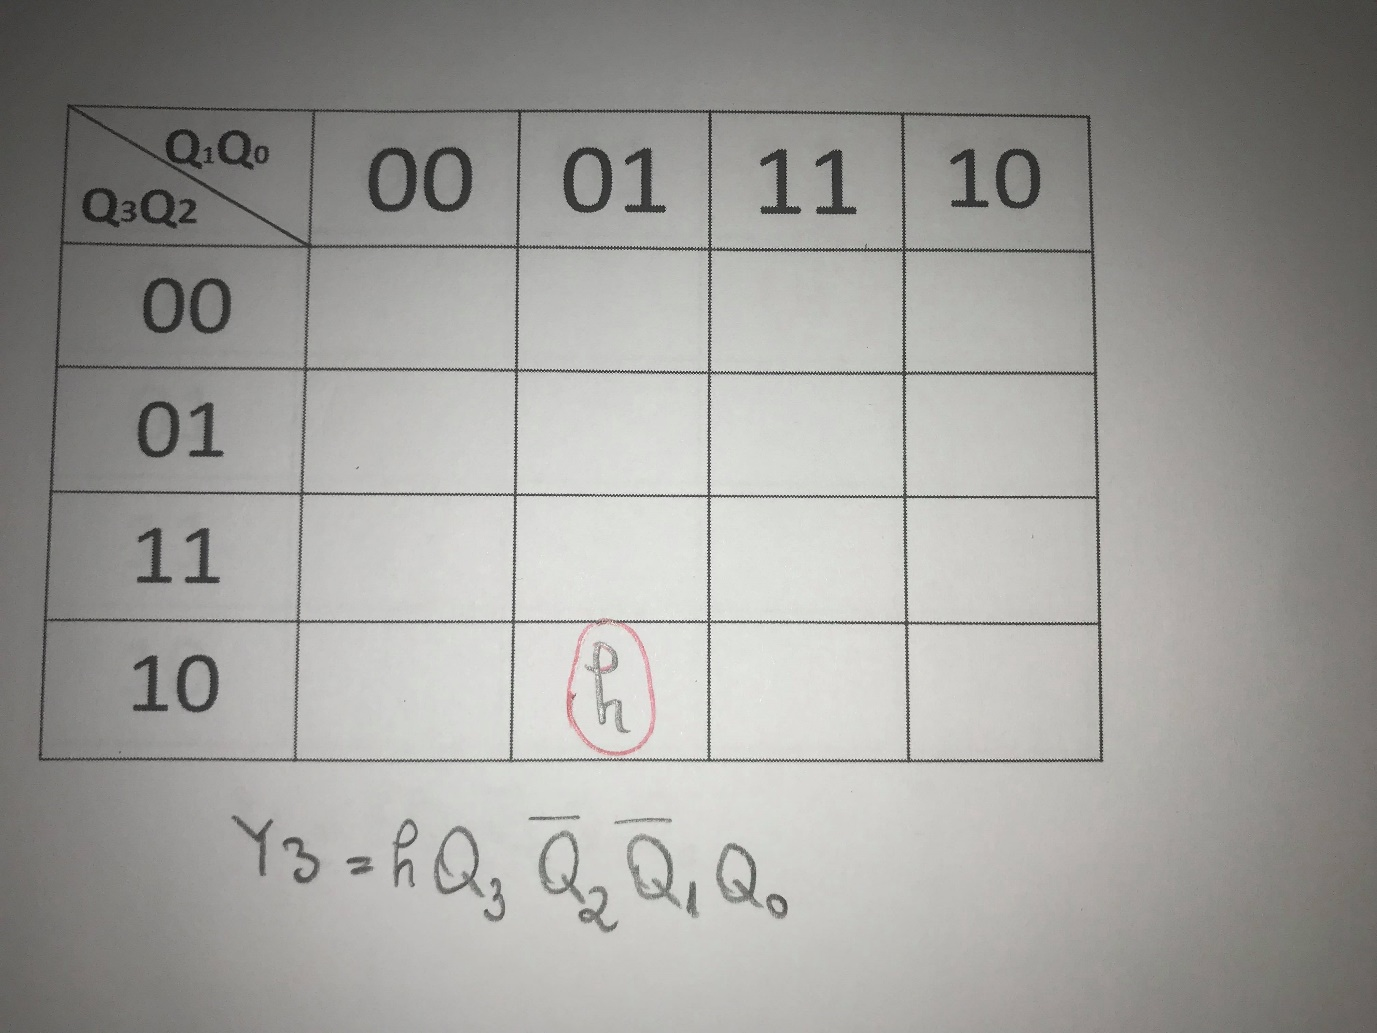 Q₁Q₀
Q₃Q₂
00 01 11 10
00
01
11
10 h
Y3 = h Q₃ Q̅₂ Q̅₁ Q₀